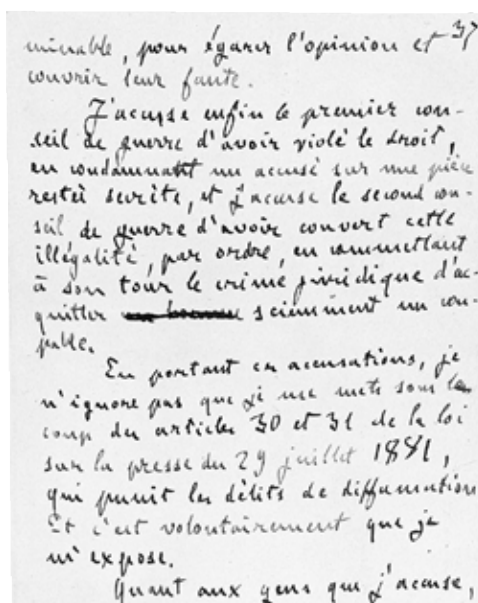 minable, pour égarer l'opinion et 37
couvrir leur faute.
J'accuse enfin le premier con-
seil de guerre d'avoir violé le droit,
en condamnant un accusé sur une pièce
restée secrète, et j'accuse le second con-
seil de guerre d'avoir couvert cette
illégalité, par ordre, en commettant
à son tour le crime juridique d'ac-
quitter sciemment un cou-
pable.
En portant ces accusations, je
n'ignore pas que je me mets sous le
coup des articles 30 et 31 de la loi
sur la presse du 29 juillet 1881,
qui punit les délits de diffamation
Et c'est volontairement que je
m'expose.
Quant aux gens que j'accuse,